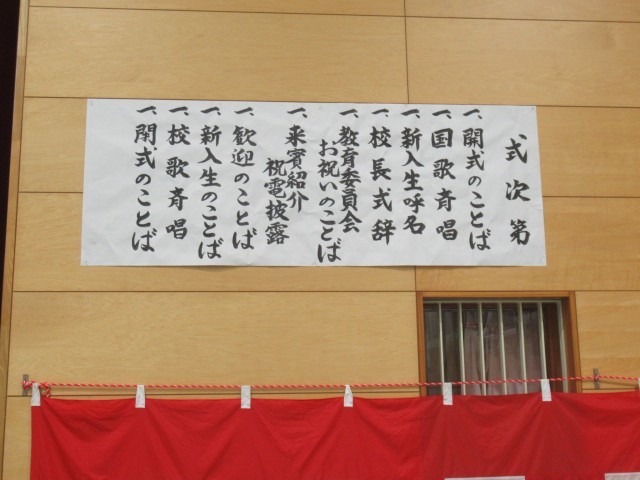 式次第
一、開式のことば
一、国歌斉唱
一、新入生呼名
一、校長式辞
一、教育委員会
お祝いのことば
一、来賓紹介
祝電披露
一、歓迎のことば
一、新入生のことば
一、校歌斉唱
一、閉式のことば